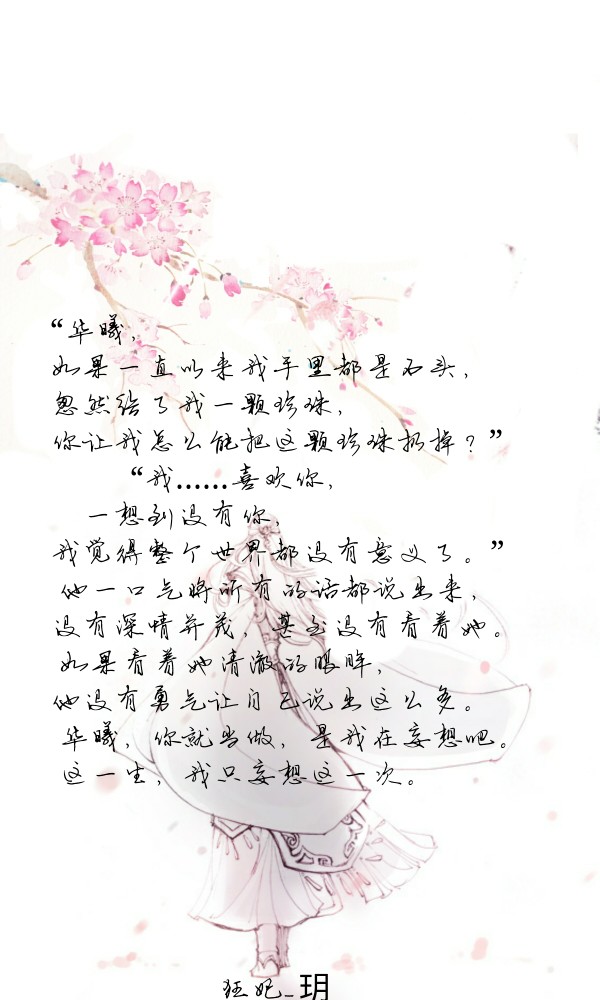 “华曦，
如果一直以来我手里都是石头，
忽然给了我一颗珍珠，
你让我怎么能把这颗珍珠扔掉？”
“我……喜欢你，
一想到没有你，
我觉得整个世界都没有意义了。”
他一口气将所有的话都说出来，
没有深情并茂，甚至没有看着她。
如果看着她清澈的眼眸，
他没有勇气让自己说出这么多。
华曦，你就当做，是我在妄想吧。
这一生，我只妄想这一次。
狂妃_玥